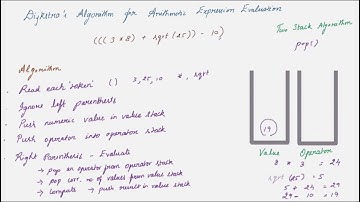 Dijkstra's Algorithm for Arithmetic Expression Evaluation
((( 3 * 8) + sqrt (25)) - 10)
Two Stack Algorithm
pop()
Algorithm
• Read each 'token' ( ) 3, 25, 10 *, sqrt
• Ignore left parenthesis
• Push numeric value in value stack
• Push operator into operator stack
• Right Parenthesis - Evaluate
→ pop an operator from operator stack
→ pop corr. no of values from value stack
→ compute → push result in value stack
19
Value Operator
8 * 3 = 24
sqrt (25) = 5
5 + 24 = 29
29 - 10 = 19